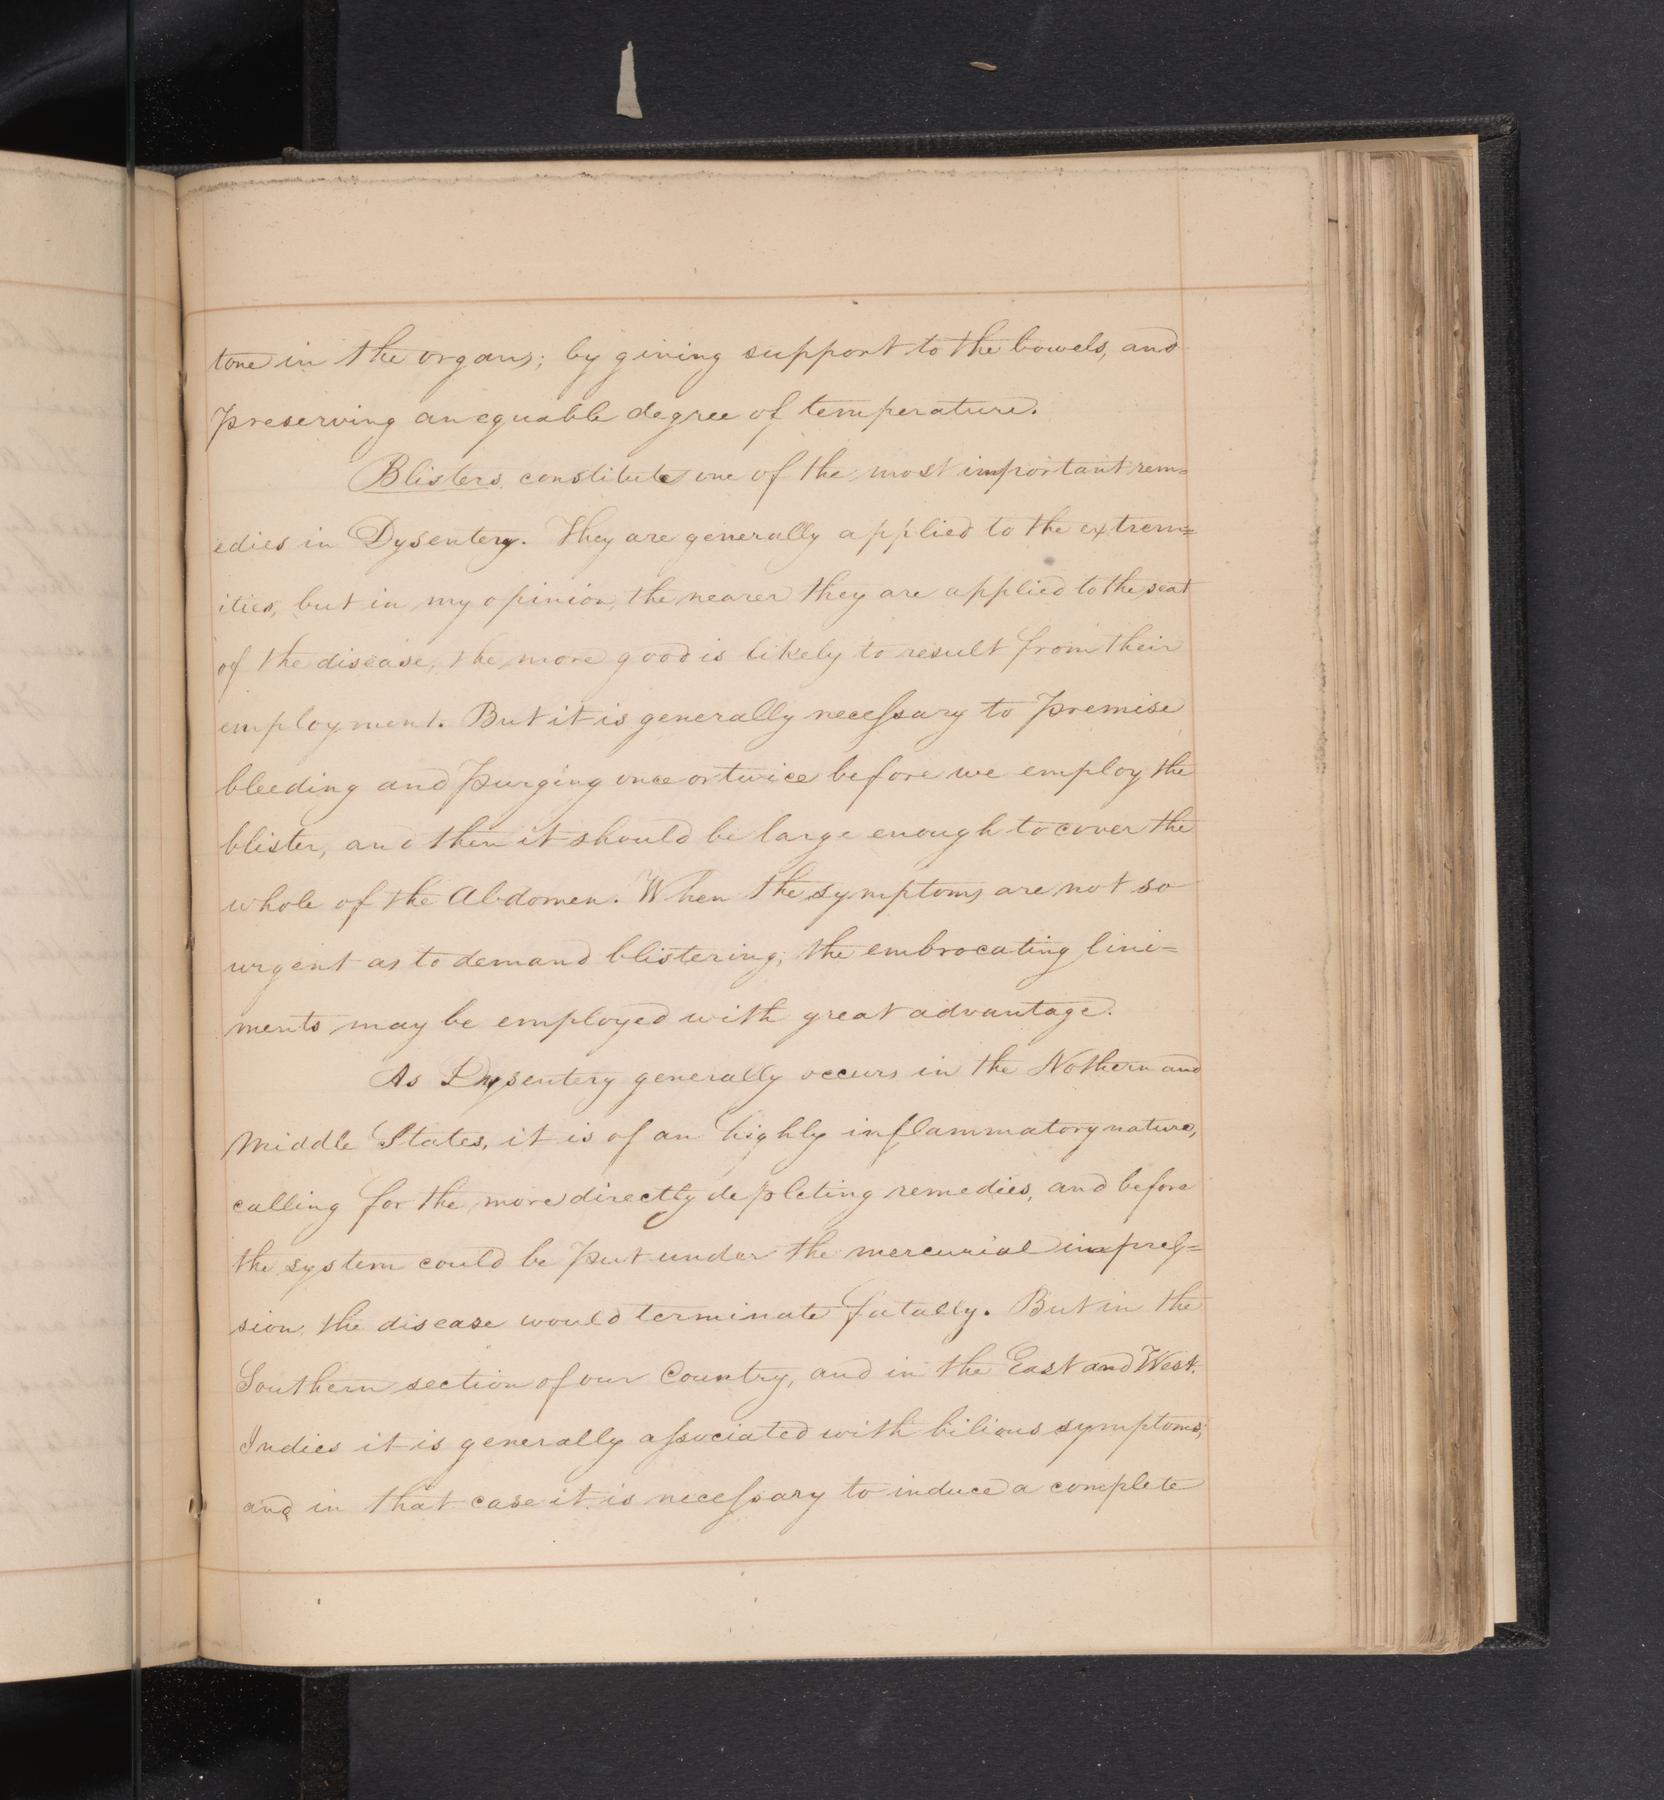 tone in the organs; by giving support to the bowels, and
preserving an equable degree of temperature.
Blisters constitute one of the most important rem=
edies in Dysentery. They are generally applied to the extrem=
ities, but in my opinion, the nearer they are applied to the seat
of the disease, the more good is likely to result from their
employment. But it is generally necessary to premise
bleeding and purging once or twice before we employ the
blister, and then it should be large enough to cover the
whole of the Abdomen. When the symptoms are not so
urgent as to demand blistering, the embrocating lini=
ments may be employed with great advantage.
As Dysentery generally occurs in the Nothern and
Middle States, it is of an highly inflammatory nature,
calling for the more directly depleting remedies, and before
the system could be put under the mercurial impres=
sion, the disease would terminate fatally. But in the
Southern section of our Country, and in the East and West.
Indies it is generally associated with bilious symptoms;
and in that case it is necessary to induce a complete